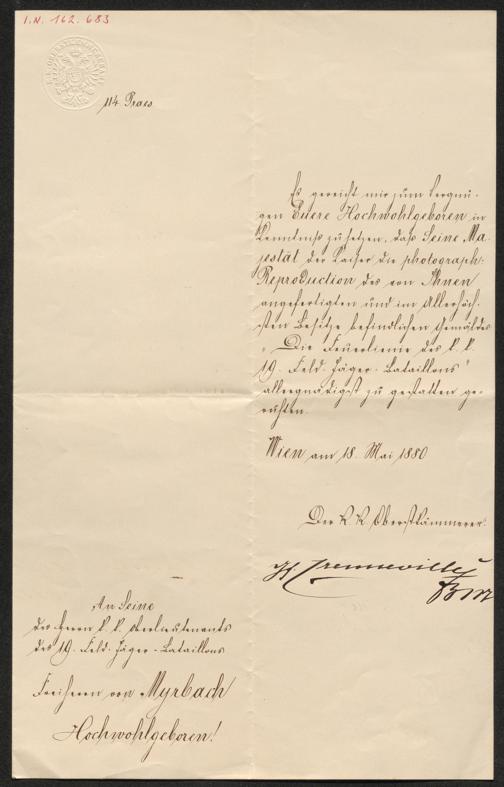 I.N. 162.683
114 Praes
Es gereicht mir zum Vergnü-
gen Euere Hochwohlgeboren in
Kenntniß zu setzen, daß Seine Ma-
jestät der Kaiser die photograph:
Reproduction des von Ihnen
angefertigten und im Allerhöch-
sten Besitze befindlichen Gemäldes
„Die Feuerlienie des k. k.
19. Feld-Jäger-Bataillons"
allergnädigst zu gestatten ge-
ruhten.
Wien am 18. Mai 1880
Der K. K. Oberstkämmerer:
Crenneville
FZM
An Seine
des Herrn k. k. Oberlieutenants
des 19. Feld-Jäger-Bataillons
Freiherrn von Myrbach
Hochwohlgeboren!